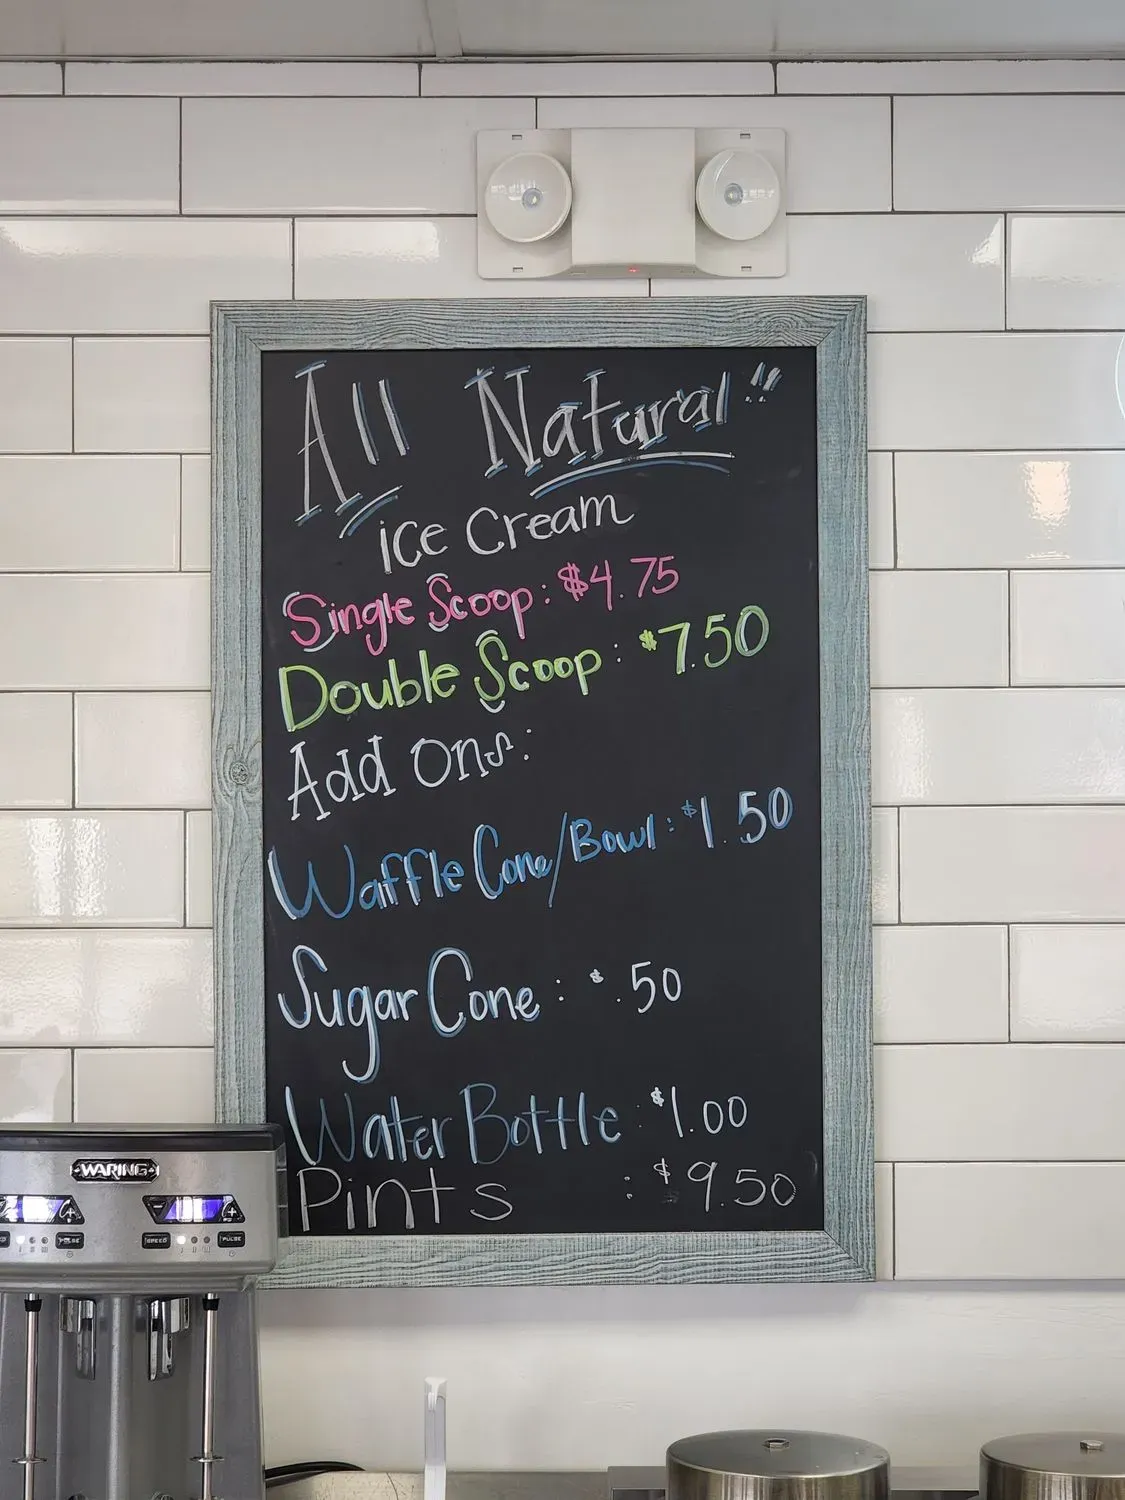 All Natural!!
ice Cream
Single Scoop: $4.75
Double Scoop: $7.50
Add Ons:
Waffle Cone/Bowl: $1.50
Sugar Cone: $.50
Water Bottle: $1.00
Pints : $9.50
WARING
PULSE SPEED PULSE